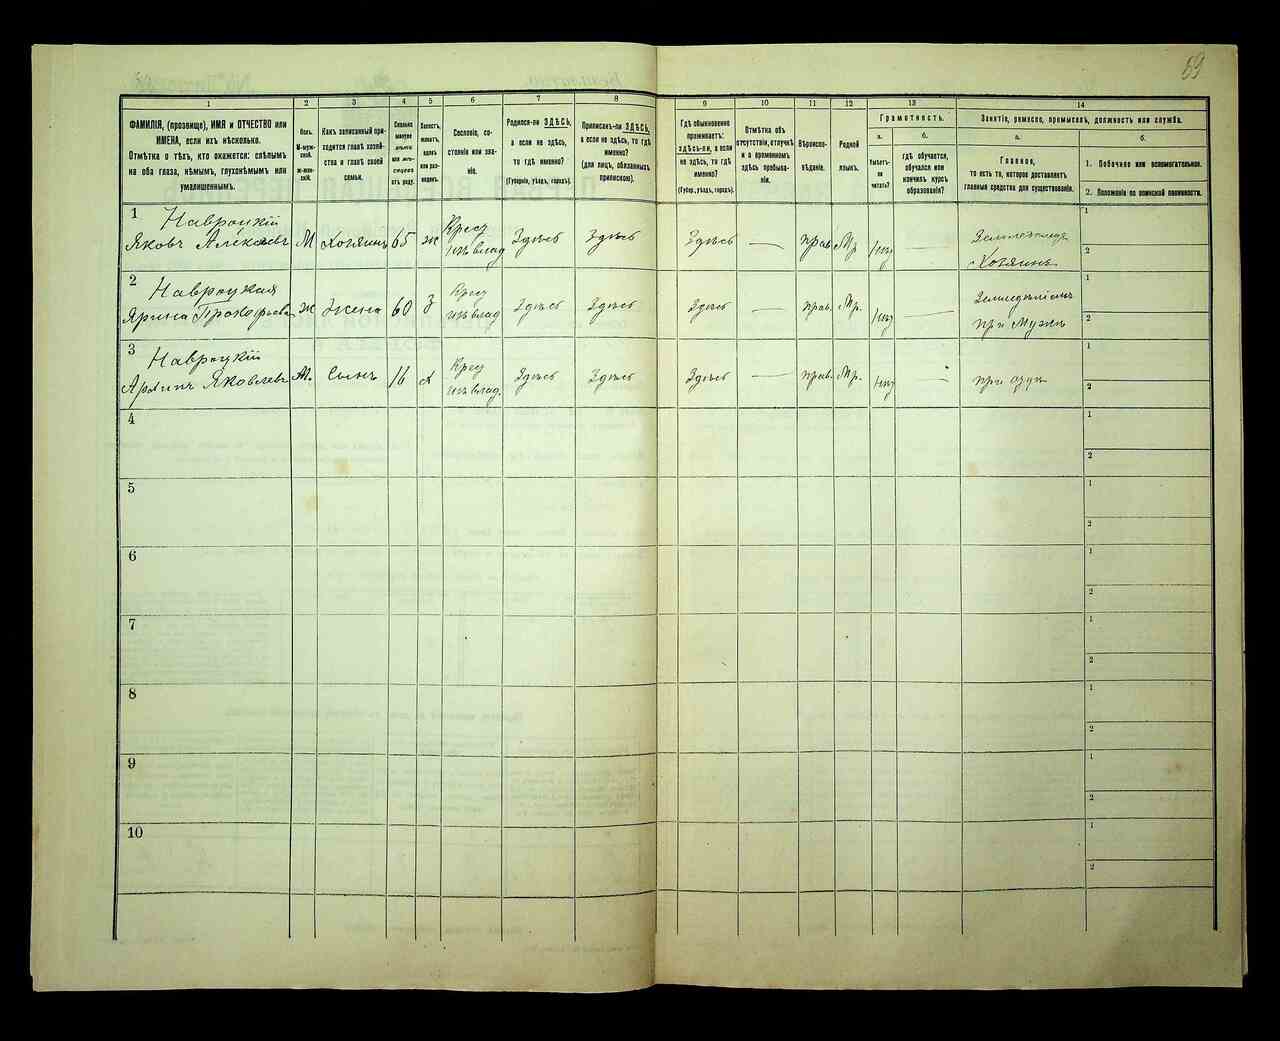 59
1
2
3
4
5
6
7
8
9
10
11
12
13
14
ФАМИЛІЯ, (прозвище), ИМЯ и ОТЧЕСТВО или
ИМЕНА, если ихъ нѣсколько.
Отмѣтка о тѣхъ, кто окажется: слѣпымъ
на оба глаза, нѣмымъ, глухонѣмымъ или
умалишеннымъ.
Полъ.
М-муж-
ской.
ж-жен-
скій.
Какъ записанный при-
ходится главѣ хозяй-
ства и главѣ своей
семьи.
Сколько
минуло
лѣтъ
или мѣ-
сяцевъ
отъ роду.
Холостъ,
женатъ,
вдовъ
или раз-
веденъ.
Сословіе, со-
стояніе или зва-
ніе.
Родился-ли ЗДѢСЬ,
а если не здѣсь,
то гдѣ именно?
(Губернія, уѣздъ, городъ).
Приписанъ-ли ЗДѢСЬ,
а если не здѣсь, то гдѣ
именно?
(для лицъ, обязанныхъ
припискою).
Гдѣ обыкновенно
проживаетъ:
здѣсь-ли, а если
не здѣсь, то гдѣ
именно?
(Губер., уѣздъ, городъ).
Отмѣтка объ
отсутствіи, отлучкѣ
и о временномъ
здѣсь пребыва-
ніи.
Вѣроиспо-
вѣданіе.
Родной
языкъ.
Грамотность.
а.
Умѣетъ-
ли
читать?
б.
гдѣ обучается,
обучался или
кончилъ курсъ
образованія?
Занятіе, ремесло, промыселъ, должность или служба.
а.
Главное,
то есть то, которое доставляетъ
главныя средства для существованія.
б.
1. Побочное или вспомогательное.
2. Положеніе по воинской повинности.
1 Навроцкій
Яковъ Алексѣевъ М Хозяинъ 65 ж Крест изъ влад Здѣсь Здѣсь Здѣсь — прав. Мр. нѣт Хозяинъ
1
2
2 Навроцкая
Ярина Прокофьева ж Жена 60 З Крест изъ влад Здѣсь Здѣсь Здѣсь — прав. Мр. нѣт — при мужѣ
1
2
3 Навроцкій
Архипъ Яковлевъ М. Сынъ 16 х Крест изъ влад. Здѣсь Здѣсь Здѣсь — прав. Мр. нѣт — при отцѣ
1
2
4
1
2
5
1
2
6
1
2
7
1
2
8
1
2
9
1
2
10
1
2